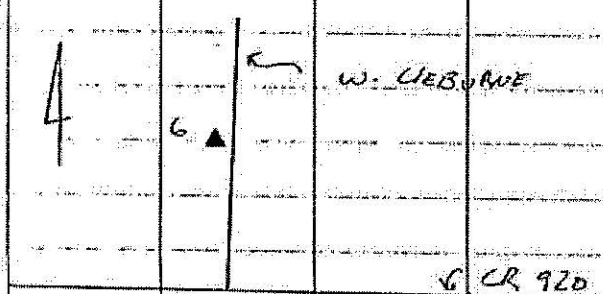 W. CLEBURNE
6
CR 920